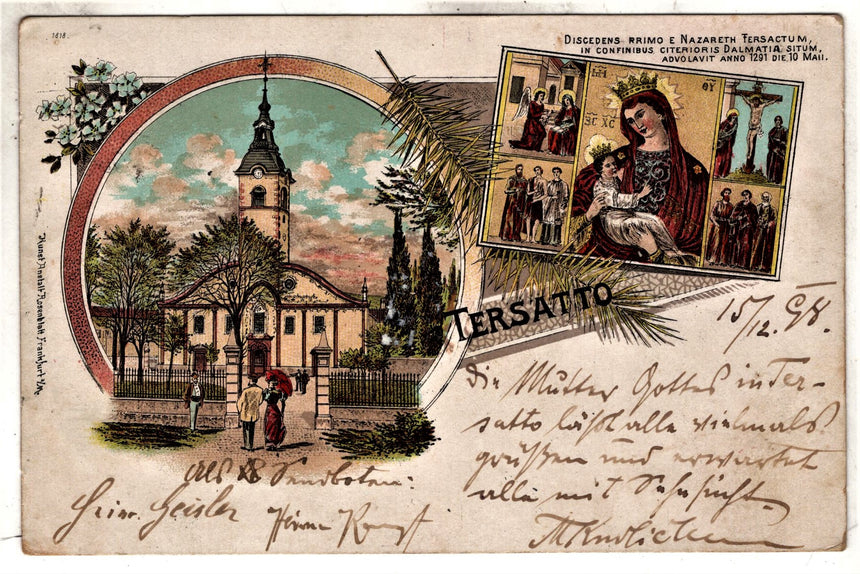 1818.
DISCEDENS PRIMO E NAZARETH TERSACTUM,
IN CONFINIBUS CITERIORIS DALMATIA SITUM,
ADVOLAVIT ANNO 1291 DIE 10 MAII.
TERSATTO
Kunst Anstalt Rosenblatt Frankfurt a/M.
15/12. 98.
Die Mutter Gottes in Ter-
satto läßt alle vielmals
grüßen und erwartet
alle mit Sehnsucht.
Als Sendboten:
Geisler